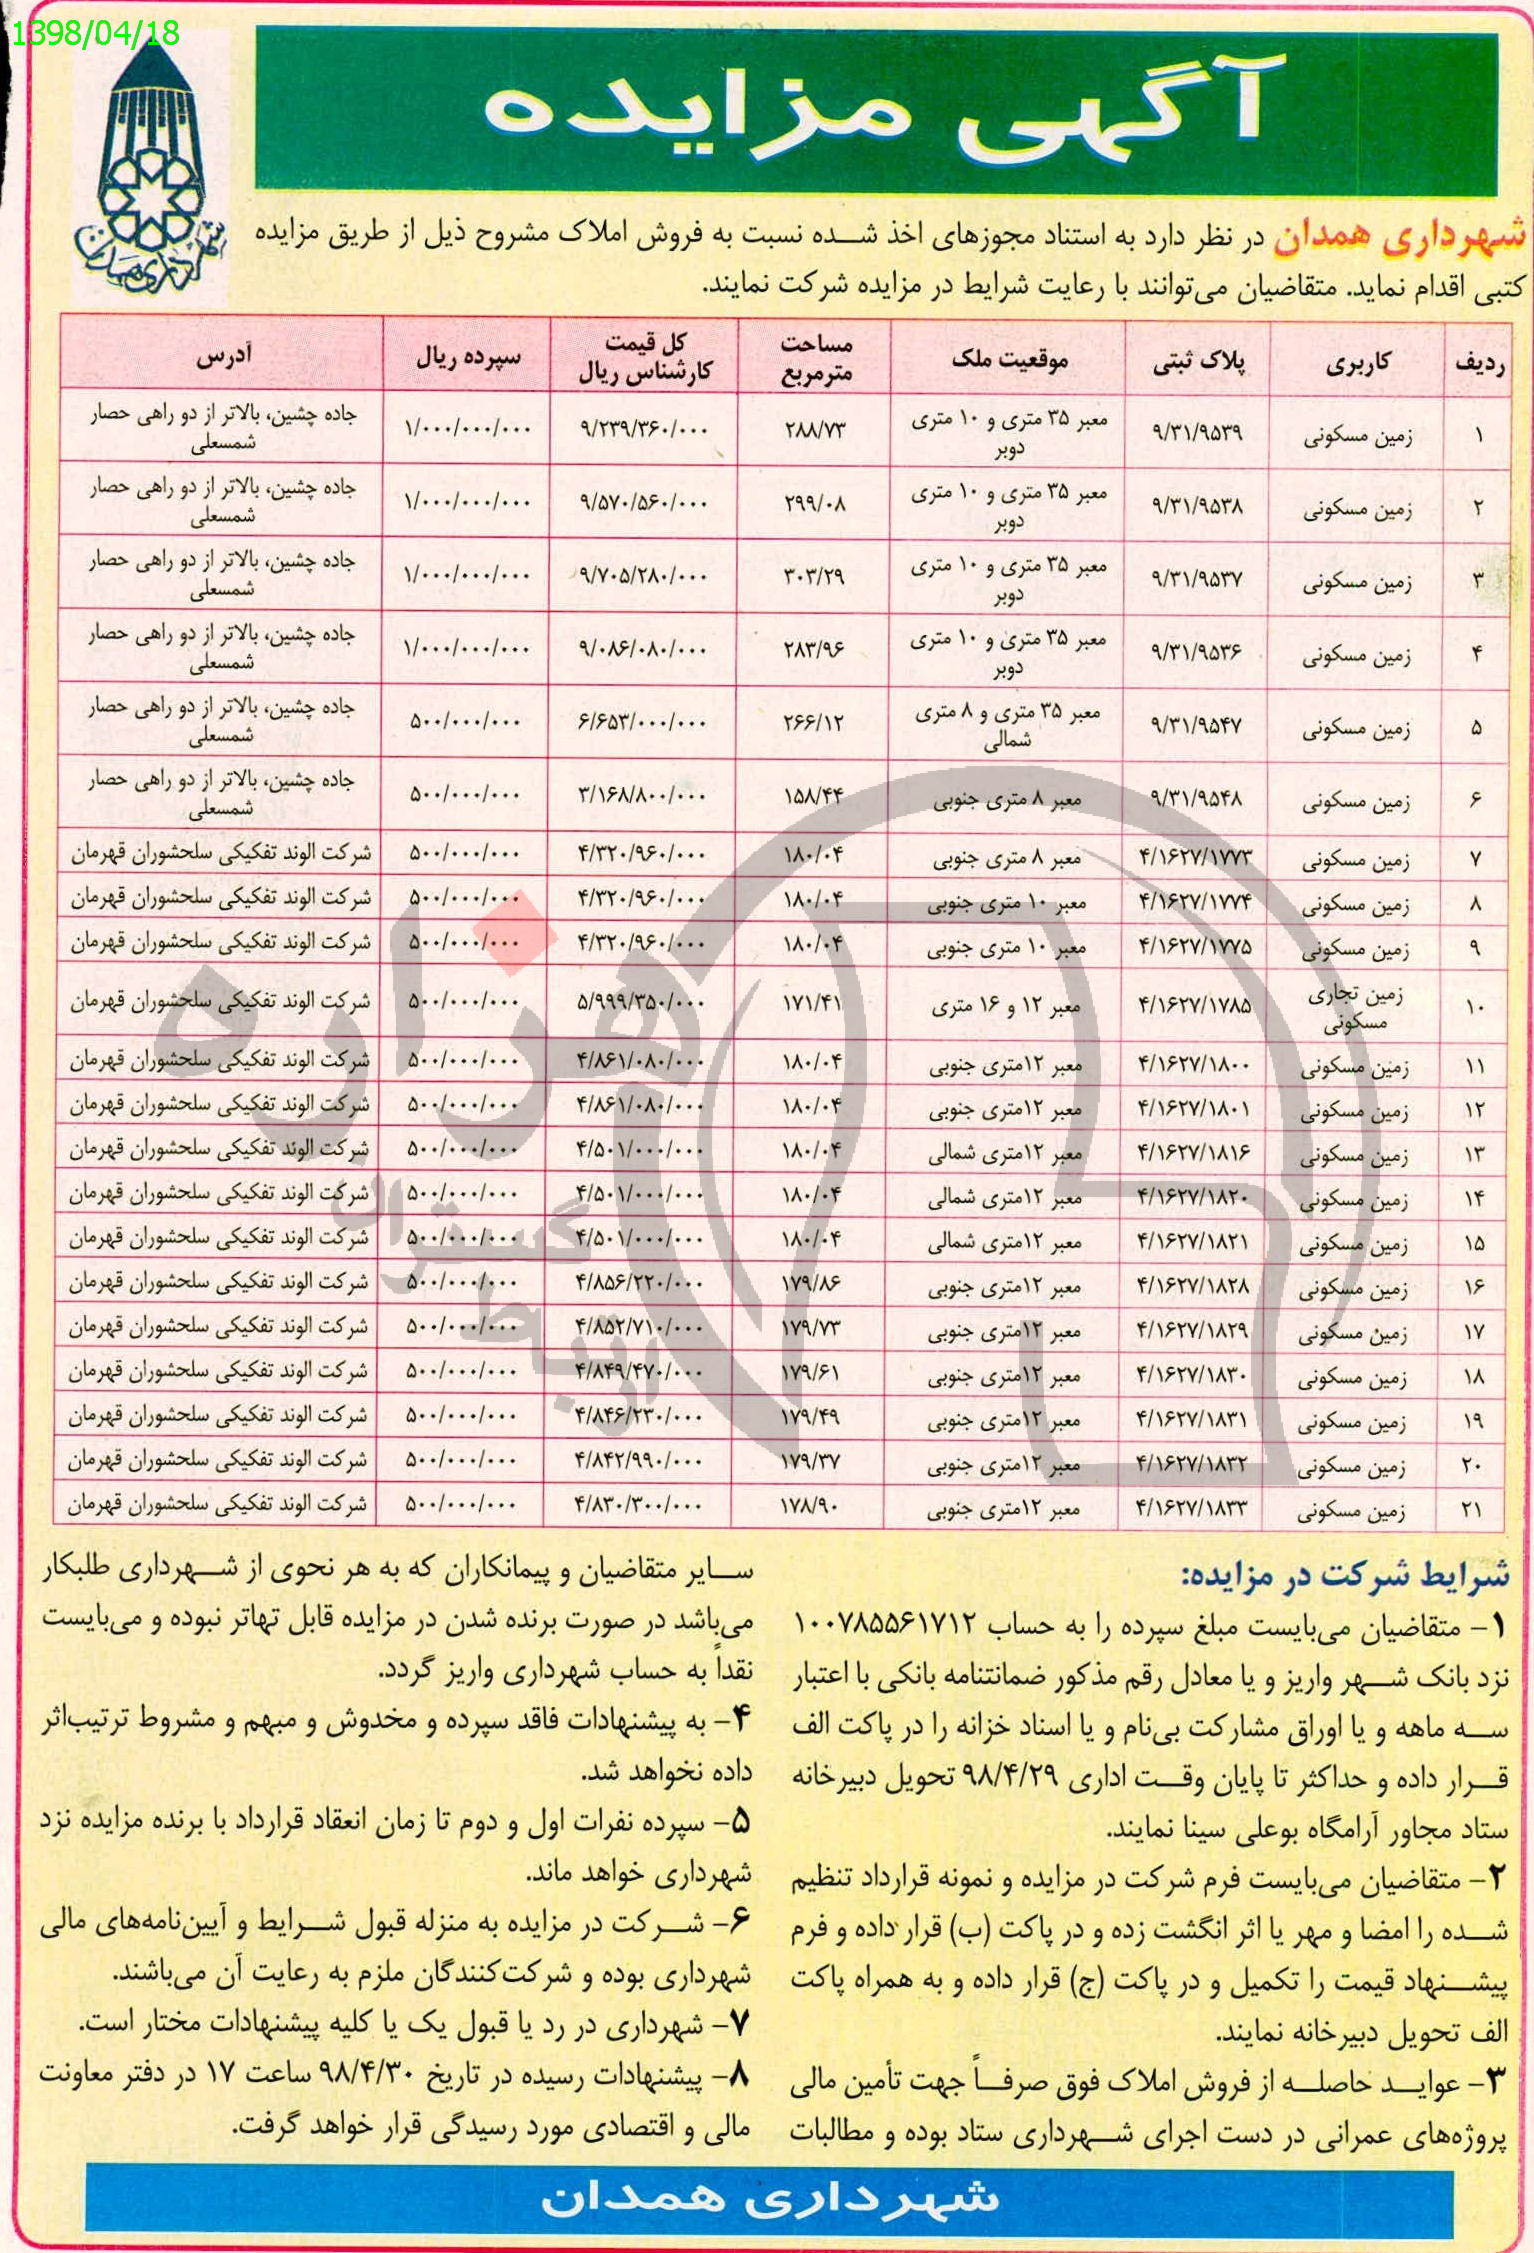 1398/04/18
آگهی مزایده
شهرداری همدان
شهرداری همدان در نظر دارد به استناد مجوزهای اخذ شده نسبت به فروش املاک مشروح ذیل از طریق مزایده
کتبی اقدام نماید. متقاضیان می‌توانند با رعایت شرایط در مزایده شرکت نمایند.
ردیف کاربری پلاک ثبتی موقعیت ملک مساحت مترمربع کل قیمت کارشناس ریال سپرده ریال آدرس
۱ زمین مسکونی ۹/۳۱/۹۵۳۹ معبر ۳۵ متری و ۱۰ متری دوبر ۲۸۸/۷۳ ۹/۲۳۹/۳۶۰/۰۰۰ ۱/۰۰۰/۰۰۰/۰۰۰ جاده چشین، بالاتر از دو راهی حصار شمسعلی
۲ زمین مسکونی ۹/۳۱/۹۵۳۸ معبر ۳۵ متری و ۱۰ متری دوبر ۲۹۹/۰۸ ۹/۵۷۰/۵۶۰/۰۰۰ ۱/۰۰۰/۰۰۰/۰۰۰ جاده چشین، بالاتر از دو راهی حصار شمسعلی
۳ زمین مسکونی ۹/۳۱/۹۵۳۷ معبر ۳۵ متری و ۱۰ متری دوبر ۳۰۳/۲۹ ۹/۷۰۵/۲۸۰/۰۰۰ ۱/۰۰۰/۰۰۰/۰۰۰ جاده چشین، بالاتر از دو راهی حصار شمسعلی
۴ زمین مسکونی ۹/۳۱/۹۵۳۶ معبر ۳۵ متری و ۱۰ متری دوبر ۲۸۳/۹۶ ۹/۰۸۶/۰۸۰/۰۰۰ ۱/۰۰۰/۰۰۰/۰۰۰ جاده چشین، بالاتر از دو راهی حصار شمسعلی
۵ زمین مسکونی ۹/۳۱/۹۵۴۷ معبر ۳۵ متری و ۸ متری شمالی ۲۶۶/۱۲ ۶/۶۵۳/۰۰۰/۰۰۰ ۵۰۰/۰۰۰/۰۰۰ جاده چشین، بالاتر از دو راهی حصار شمسعلی
۶ زمین مسکونی ۹/۳۱/۹۵۴۸ معبر ۸ متری جنوبی ۱۵۸/۴۴ ۳/۱۶۸/۸۰۰/۰۰۰ ۵۰۰/۰۰۰/۰۰۰ جاده چشین، بالاتر از دو راهی حصار شمسعلی
۷ زمین مسکونی ۴/۱۶۲۷/۱۷۷۳ معبر ۸ متری جنوبی ۱۸۰/۰۴ ۴/۳۲۰/۹۶۰/۰۰۰ ۵۰۰/۰۰۰/۰۰۰ شرکت الوند تفکیکی سلحشوران قهرمان
۸ زمین مسکونی ۴/۱۶۲۷/۱۷۷۴ معبر ۱۰ متری جنوبی ۱۸۰/۰۴ ۴/۳۲۰/۹۶۰/۰۰۰ ۵۰۰/۰۰۰/۰۰۰ شرکت الوند تفکیکی سلحشوران قهرمان
۹ زمین مسکونی ۴/۱۶۲۷/۱۷۷۵ معبر ۱۰ متری جنوبی ۱۸۰/۰۴ ۴/۳۲۰/۹۶۰/۰۰۰ ۵۰۰/۰۰۰/۰۰۰ شرکت الوند تفکیکی سلحشوران قهرمان
۱۰ زمین تجاری مسکونی ۴/۱۶۲۷/۱۷۸۵ معبر ۱۲ و ۱۶ متری ۱۷۱/۴۱ ۵/۹۹۹/۳۵۰/۰۰۰ ۵۰۰/۰۰۰/۰۰۰ شرکت الوند تفکیکی سلحشوران قهرمان
۱۱ زمین مسکونی ۴/۱۶۲۷/۱۸۰۰ معبر ۱۲متری جنوبی ۱۸۰/۰۴ ۴/۸۶۱/۰۸۰/۰۰۰ ۵۰۰/۰۰۰/۰۰۰ شرکت الوند تفکیکی سلحشوران قهرمان
۱۲ زمین مسکونی ۴/۱۶۲۷/۱۸۰۱ معبر ۱۲متری جنوبی ۱۸۰/۰۴ ۴/۸۶۱/۰۸۰/۰۰۰ ۵۰۰/۰۰۰/۰۰۰ شرکت الوند تفکیکی سلحشوران قهرمان
۱۳ زمین مسکونی ۴/۱۶۲۷/۱۸۱۶ معبر ۱۲متری شمالی ۱۸۰/۰۴ ۴/۵۰۱/۰۰۰/۰۰۰ ۵۰۰/۰۰۰/۰۰۰ شرکت الوند تفکیکی سلحشوران قهرمان
۱۴ زمین مسکونی ۴/۱۶۲۷/۱۸۲۰ معبر ۱۲متری شمالی ۱۸۰/۰۴ ۴/۵۰۱/۰۰۰/۰۰۰ ۵۰۰/۰۰۰/۰۰۰ شرکت الوند تفکیکی سلحشوران قهرمان
۱۵ زمین مسکونی ۴/۱۶۲۷/۱۸۲۱ معبر ۱۲متری شمالی ۱۸۰/۰۴ ۴/۵۰۱/۰۰۰/۰۰۰ ۵۰۰/۰۰۰/۰۰۰ شرکت الوند تفکیکی سلحشوران قهرمان
۱۶ زمین مسکونی ۴/۱۶۲۷/۱۸۲۸ معبر ۱۲متری جنوبی ۱۷۹/۸۶ ۴/۸۵۶/۲۲۰/۰۰۰ ۵۰۰/۰۰۰/۰۰۰ شرکت الوند تفکیکی سلحشوران قهرمان
۱۷ زمین مسکونی ۴/۱۶۲۷/۱۸۲۹ معبر ۱۲متری جنوبی ۱۷۹/۷۳ ۴/۸۵۲/۷۱۰/۰۰۰ ۵۰۰/۰۰۰/۰۰۰ شرکت الوند تفکیکی سلحشوران قهرمان
۱۸ زمین مسکونی ۴/۱۶۲۷/۱۸۳۰ معبر ۱۲متری جنوبی ۱۷۹/۶۱ ۴/۸۴۹/۴۷۰/۰۰۰ ۵۰۰/۰۰۰/۰۰۰ شرکت الوند تفکیکی سلحشوران قهرمان
۱۹ زمین مسکونی ۴/۱۶۲۷/۱۸۳۱ معبر ۱۲متری جنوبی ۱۷۹/۴۹ ۴/۸۴۶/۲۳۰/۰۰۰ ۵۰۰/۰۰۰/۰۰۰ شرکت الوند تفکیکی سلحشوران قهرمان
۲۰ زمین مسکونی ۴/۱۶۲۷/۱۸۳۲ معبر ۱۲متری جنوبی ۱۷۹/۳۷ ۴/۸۴۲/۹۹۰/۰۰۰ ۵۰۰/۰۰۰/۰۰۰ شرکت الوند تفکیکی سلحشوران قهرمان
۲۱ زمین مسکونی ۴/۱۶۲۷/۱۸۳۳ معبر ۱۲متری جنوبی ۱۷۸/۹۰ ۴/۸۳۰/۳۰۰/۰۰۰ ۵۰۰/۰۰۰/۰۰۰ شرکت الوند تفکیکی سلحشوران قهرمان
شرایط شرکت در مزایده:
۱- متقاضیان می‌بایست مبلغ سپرده را به حساب ۱۰۰۷۸۵۵۶۱۷۱۲
نزد بانک شهر واریز و یا معادل رقم مذکور ضمانتنامه بانکی با اعتبار
سه ماهه و یا اوراق مشارکت بی‌نام و یا اسناد خزانه را در پاکت الف
قرار داده و حداکثر تا پایان وقت اداری ۹۸/۴/۲۹ تحویل دبیرخانه
ستاد مجاور آرامگاه بوعلی سینا نمایند.
۲- متقاضیان می‌بایست فرم شرکت در مزایده و نمونه قرارداد تنظیم
شده را امضا و مهر یا اثر انگشت زده و در پاکت (ب) قرار داده و فرم
پیشنهاد قیمت را تکمیل و در پاکت (ج) قرار داده و به همراه پاکت
الف تحویل دبیرخانه نمایند.
۳- عواید حاصله از فروش املاک فوق صرفاً جهت تأمین مالی
پروژه‌های عمرانی در دست اجرای شهرداری ستاد بوده و مطالبات
سایر متقاضیان و پیمانکاران که به هر نحوی از شهرداری طلبکار
می‌باشد در صورت برنده شدن در مزایده قابل تهاتر نبوده و می‌بایست
نقداً به حساب شهرداری واریز گردد.
۴- به پیشنهادات فاقد سپرده و مخدوش و مبهم و مشروط ترتیب‌اثر
داده نخواهد شد.
۵- سپرده نفرات اول و دوم تا زمان انعقاد قرارداد با برنده مزایده نزد
شهرداری خواهد ماند.
۶- شرکت در مزایده به منزله قبول شرایط و آیین‌نامه‌های مالی
شهرداری بوده و شرکت‌کنندگان ملزم به رعایت آن می‌باشند.
۷- شهرداری در رد یا قبول یک یا کلیه پیشنهادات مختار است.
۸- پیشنهادات رسیده در تاریخ ۹۸/۴/۳۰ ساعت ۱۷ در دفتر معاونت
مالی و اقتصادی مورد رسیدگی قرار خواهد گرفت.
شهرداری همدان